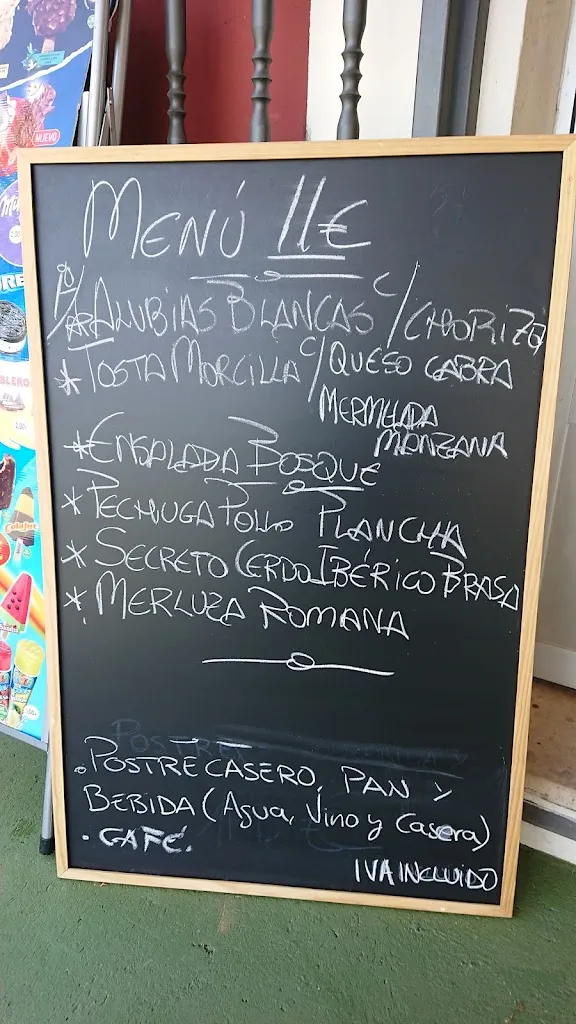 MENÚ 11€
ALUBIAS BLANCAS C/CHORIZO
* TOSTA MORCILLA C/QUESO CABRA
MERMELADA
MANZANA
* ENSALADA BOSQUE
* PECHUGA POLLO PLANCHA
* SECRETO CERDO IBÉRICO BRASA
* MERLUZA ROMANA
. POSTRE CASERO, PAN Y
BEBIDA (Agua, Vino y Casera)
. CAFÉ.
IVA INCLUIDO
NUEVO